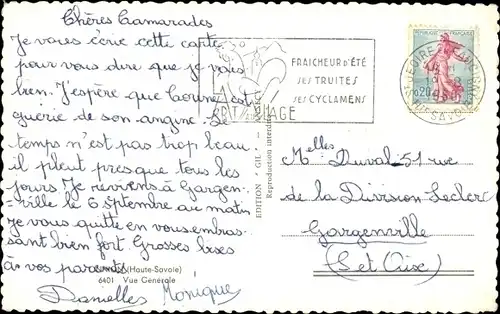 Chères Camarades
Je vous écrie cette carte
pour vous dire que je vais
bien. J'espère que Corinne est
guerie de son angine. Le
temps n'est pas trop beau.
il pleut presque tous les
jours Je reviens à Gargen-
ville le 6 Septembre au matin
Je vous quitte en vous embras-
sant bien fort. Grosses bises
à vos parents
(Haute-Savoie)
6401 Vue Générale
Danielles Monique
EDITION "GIL"
Reproduction interdite
FRAICHEUR D'ÉTÉ
SES TRUITES
SES CYCLAMENS
REPUBLIQUE FRANÇAISE
0,20
Melles Duval 51 rue
de la Division Leclerc
Gargenville
(S et Oise)